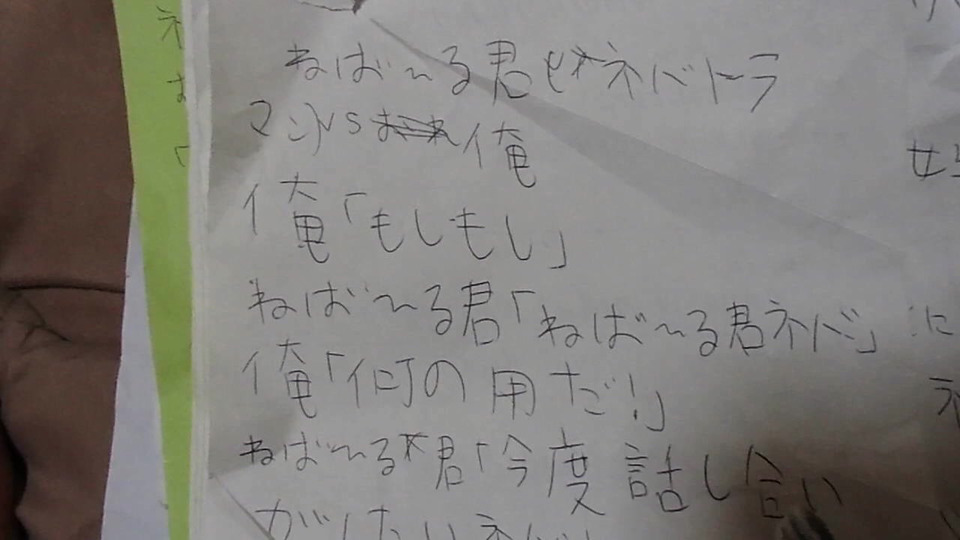 ねば〜る君とネバトラ
マンVS俺
俺「もしもし」
ねば〜る君「ねば〜る君ネバ」
俺「何の用だ!」
ねば〜る君「今度話し合い
がしたいネバ